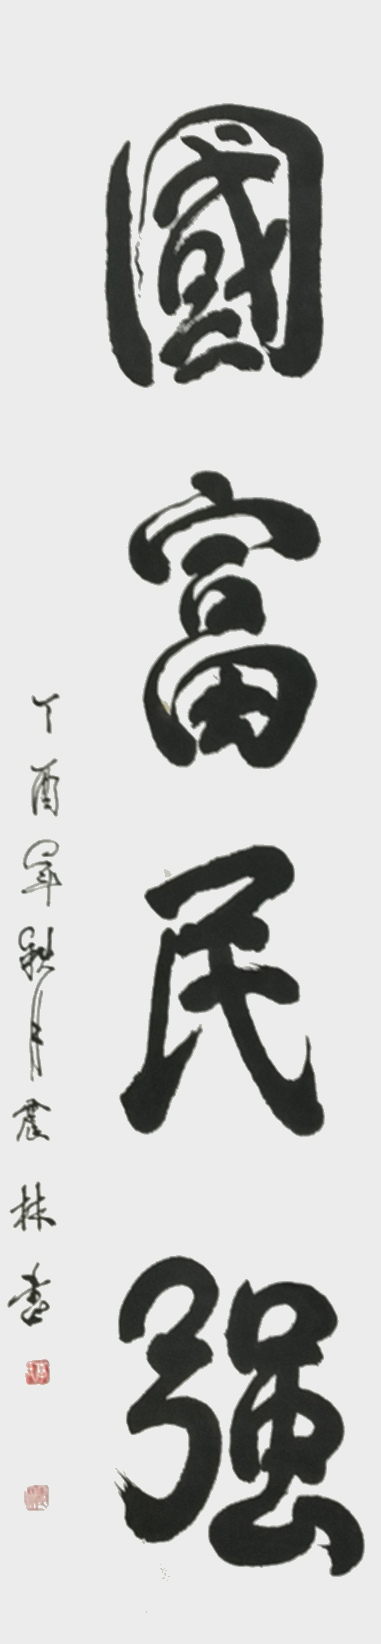 國富民强
丁酉年秋月農林書